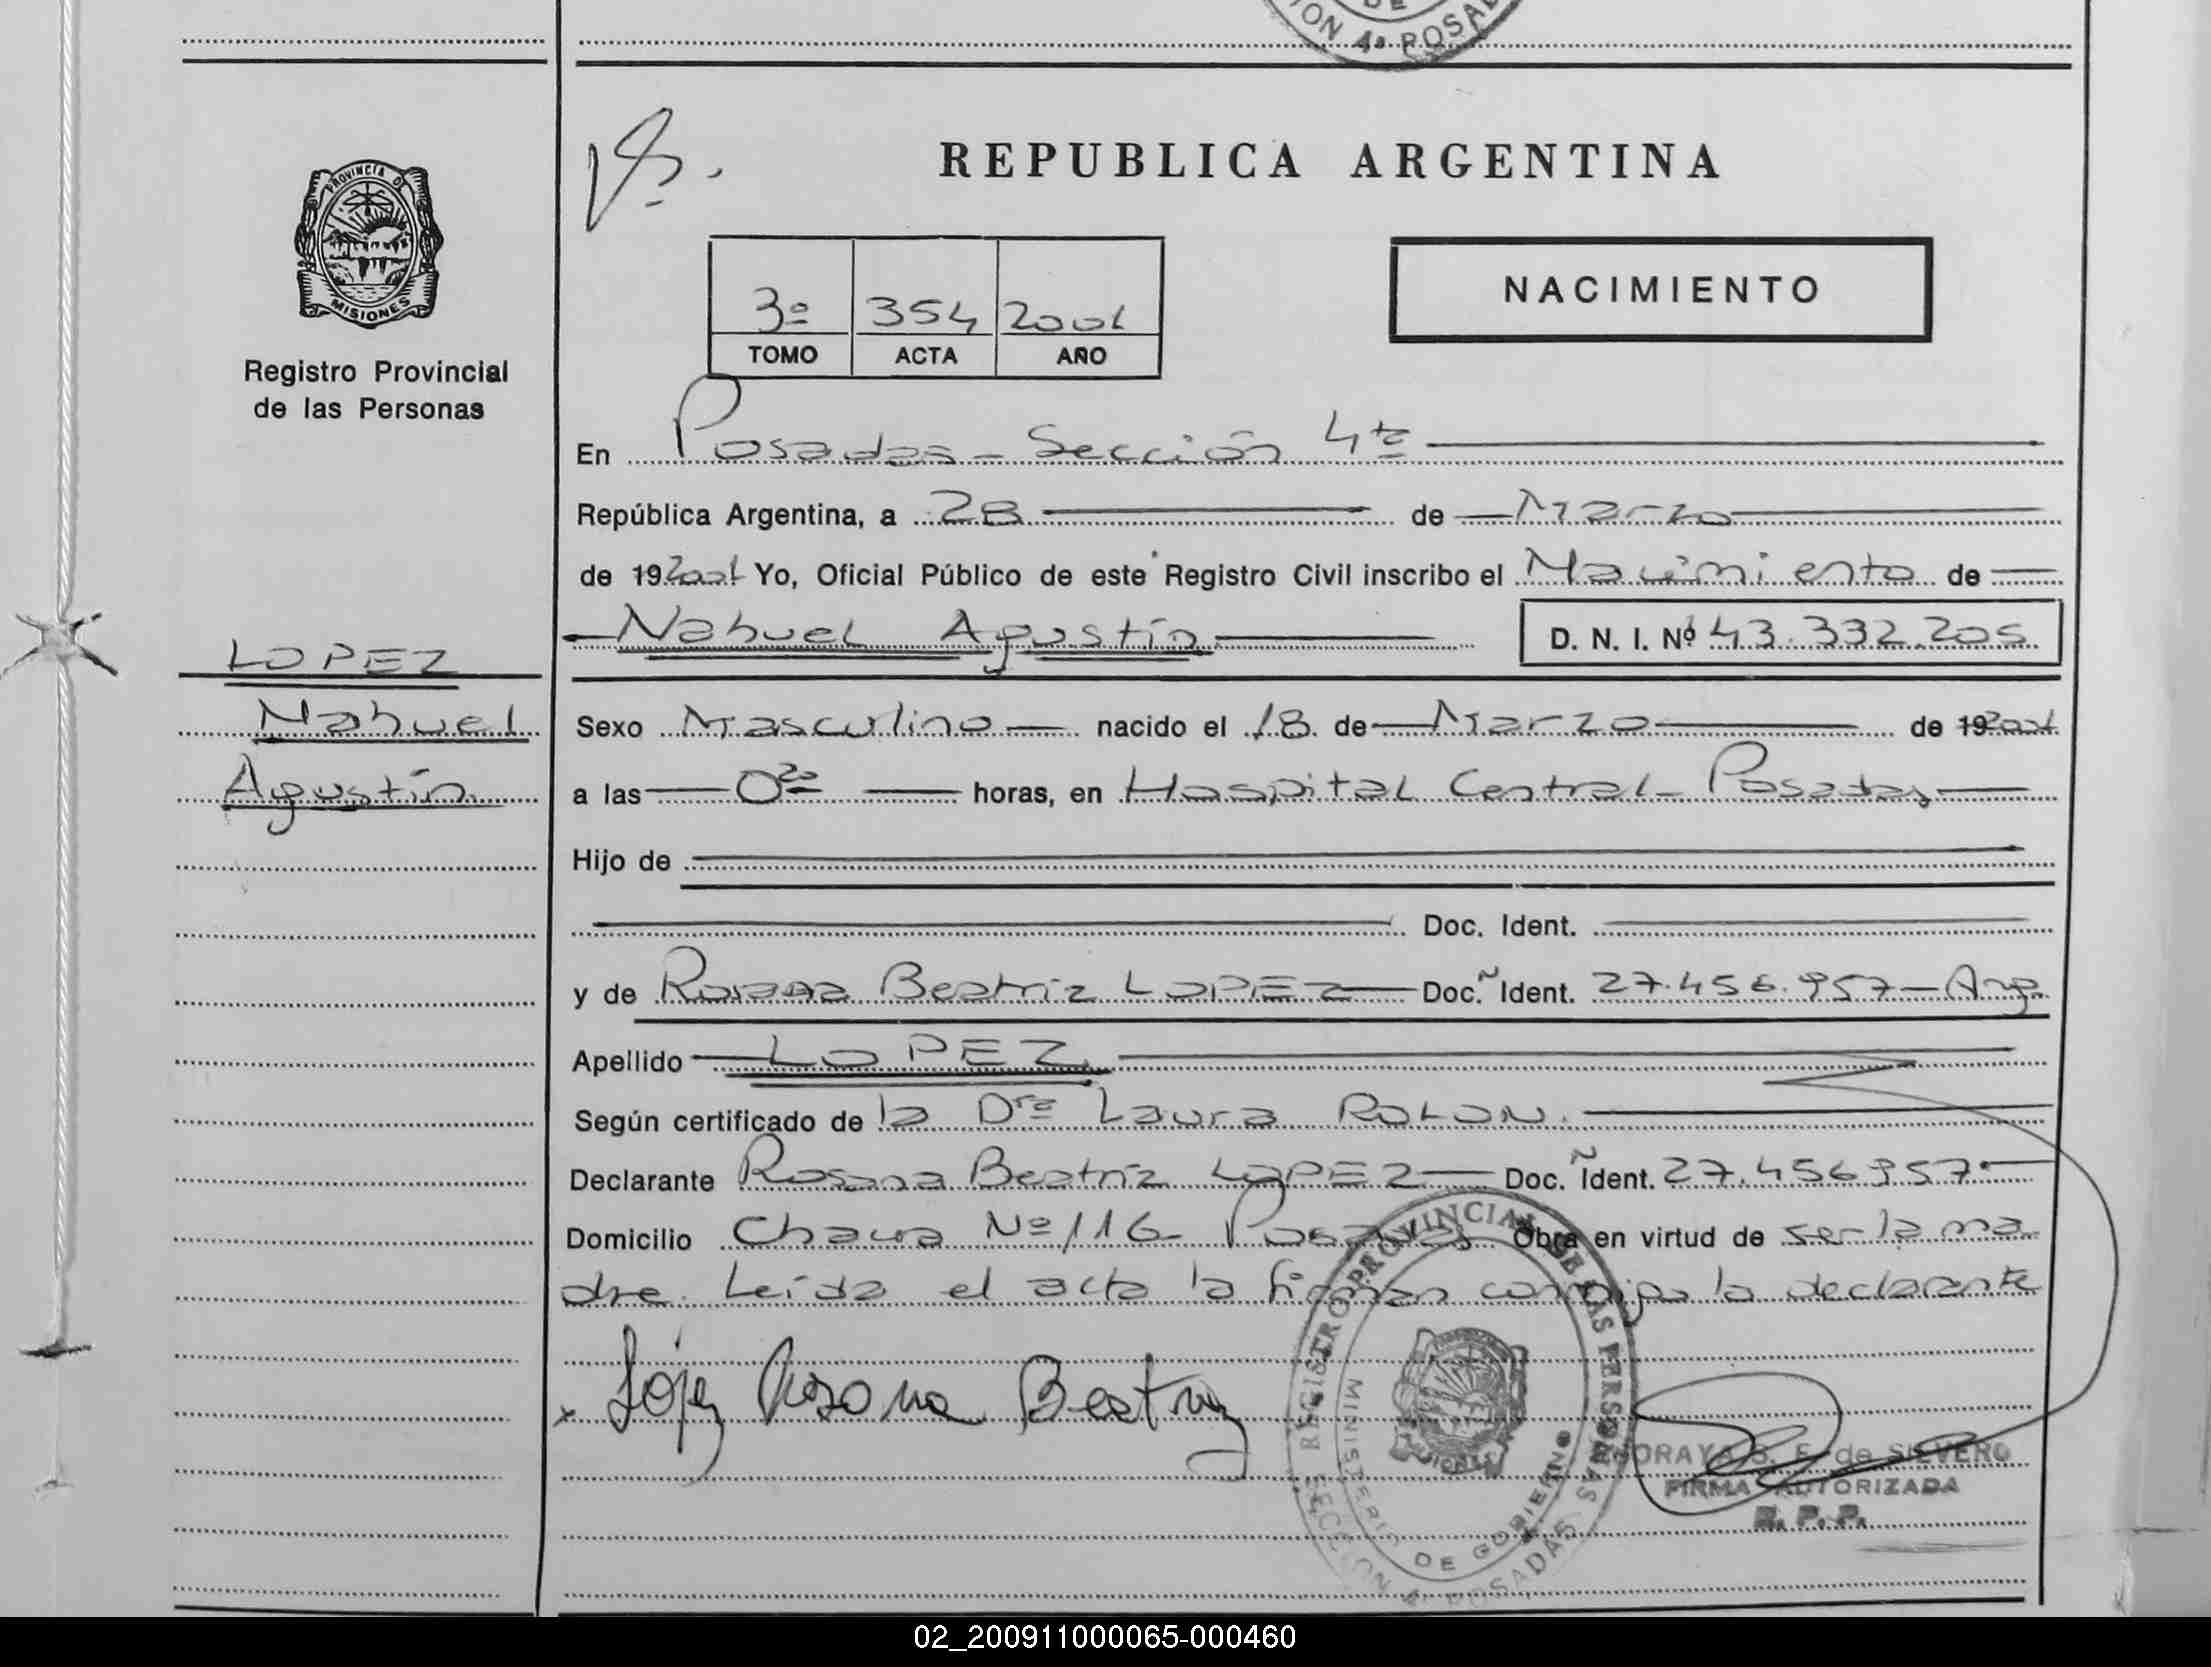 ION 4ª POSAD
DE
REPUBLICA ARGENTINA
PROVINCIA DE
MISIONES
Registro Provincial
de las Personas
3º 354 2001
TOMO ACTA AÑO
NACIMIENTO
En Posadas - Sección 4ta
República Argentina, a 28 de Marzo
de 19 2001 Yo, Oficial Público de este Registro Civil inscribo el Nacimiento de
Nahuel Agustín D. N. I. Nº 43.332.205.
LOPEZ
Nahuel
Agustín
Sexo Masculino nacido el 18 de Marzo de 19 2001
a las 0 20 horas, en Hospital Central - Posadas
Hijo de
Doc. Ident.
y de Rosana Beatriz LOPEZ Doc. Ident. 27.456.957 - Arg.
Apellido LOPEZ
Según certificado de la Dra Laura ROLON.
Declarante Rosana Beatriz LOPEZ Doc. Ident. 27.456957
Domicilio Nº 116 - Posadas Obra en virtud de ser la ma
dre. Leída el acta la firman conmigo la declarante
x López Rosana Beatriz
REGISTRO PROVINCIAL DE LAS PERSONAS
MINISTERIO DE GOBIERNO
SECCION 4ª POSADAS
SORAYA S. F. de SILVERO
FIRMA AUTORIZADA
R. P. P.
02_200911000065-000460